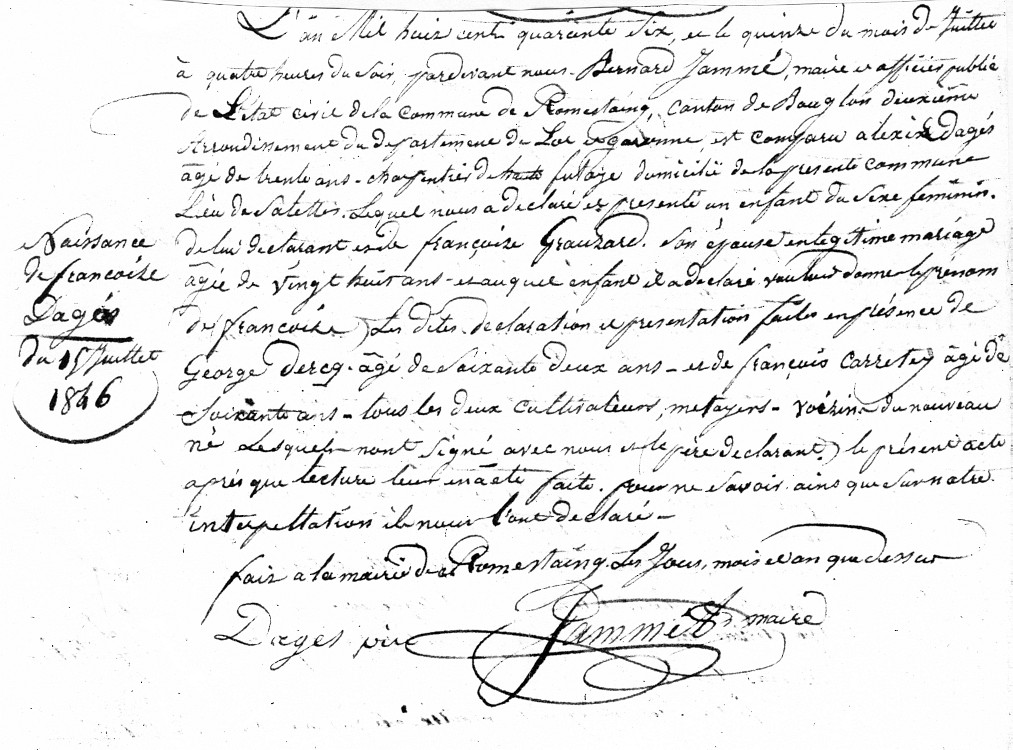 L'an Mil huit cent quarante Six, et le quinze du mois de Juillet
à quatre heures du Soir pardevant nous Bernard Jammé, maire et officier public
de L'Etat civil de la Commune de Romestaing, Canton de Bouglon deuxième
Arrondissement du departement de Lot et garonne est comparu alexis dagés
âgé de trente ans - charpentier de haute futage domicilié de la presente commune
Lieu de Lequel nous a declaré et presenté un enfant du Sexe feminin.
de lui declarant et de françoise Grauzard. Son épouse en legitime mariage
âgée de vingt huit ans - et auquel enfant il a declaré vouloir donner le prénom
de (françoise) Les dites declaration et presentation faites en présence de
George Dercq âgé de Soixante deux ans - et de françois Carretey âgé de
Soixante ans - tous les deux cultivateurs, metayers - voézins du nouveau
né Lesquels n'ont Signé avec nous et (le père declarant) le présent acte
après que lecture leur en a été faite. pour ne Savoir ainsi que Sur notre
interpellation ils nous l'ont declaré -
fait a la mairie de Romestaing. Les Jour, mois et an que dessus
Naissance
de francoise
Dagés
du 15 Juillet
1846
Dages
Jammé maire